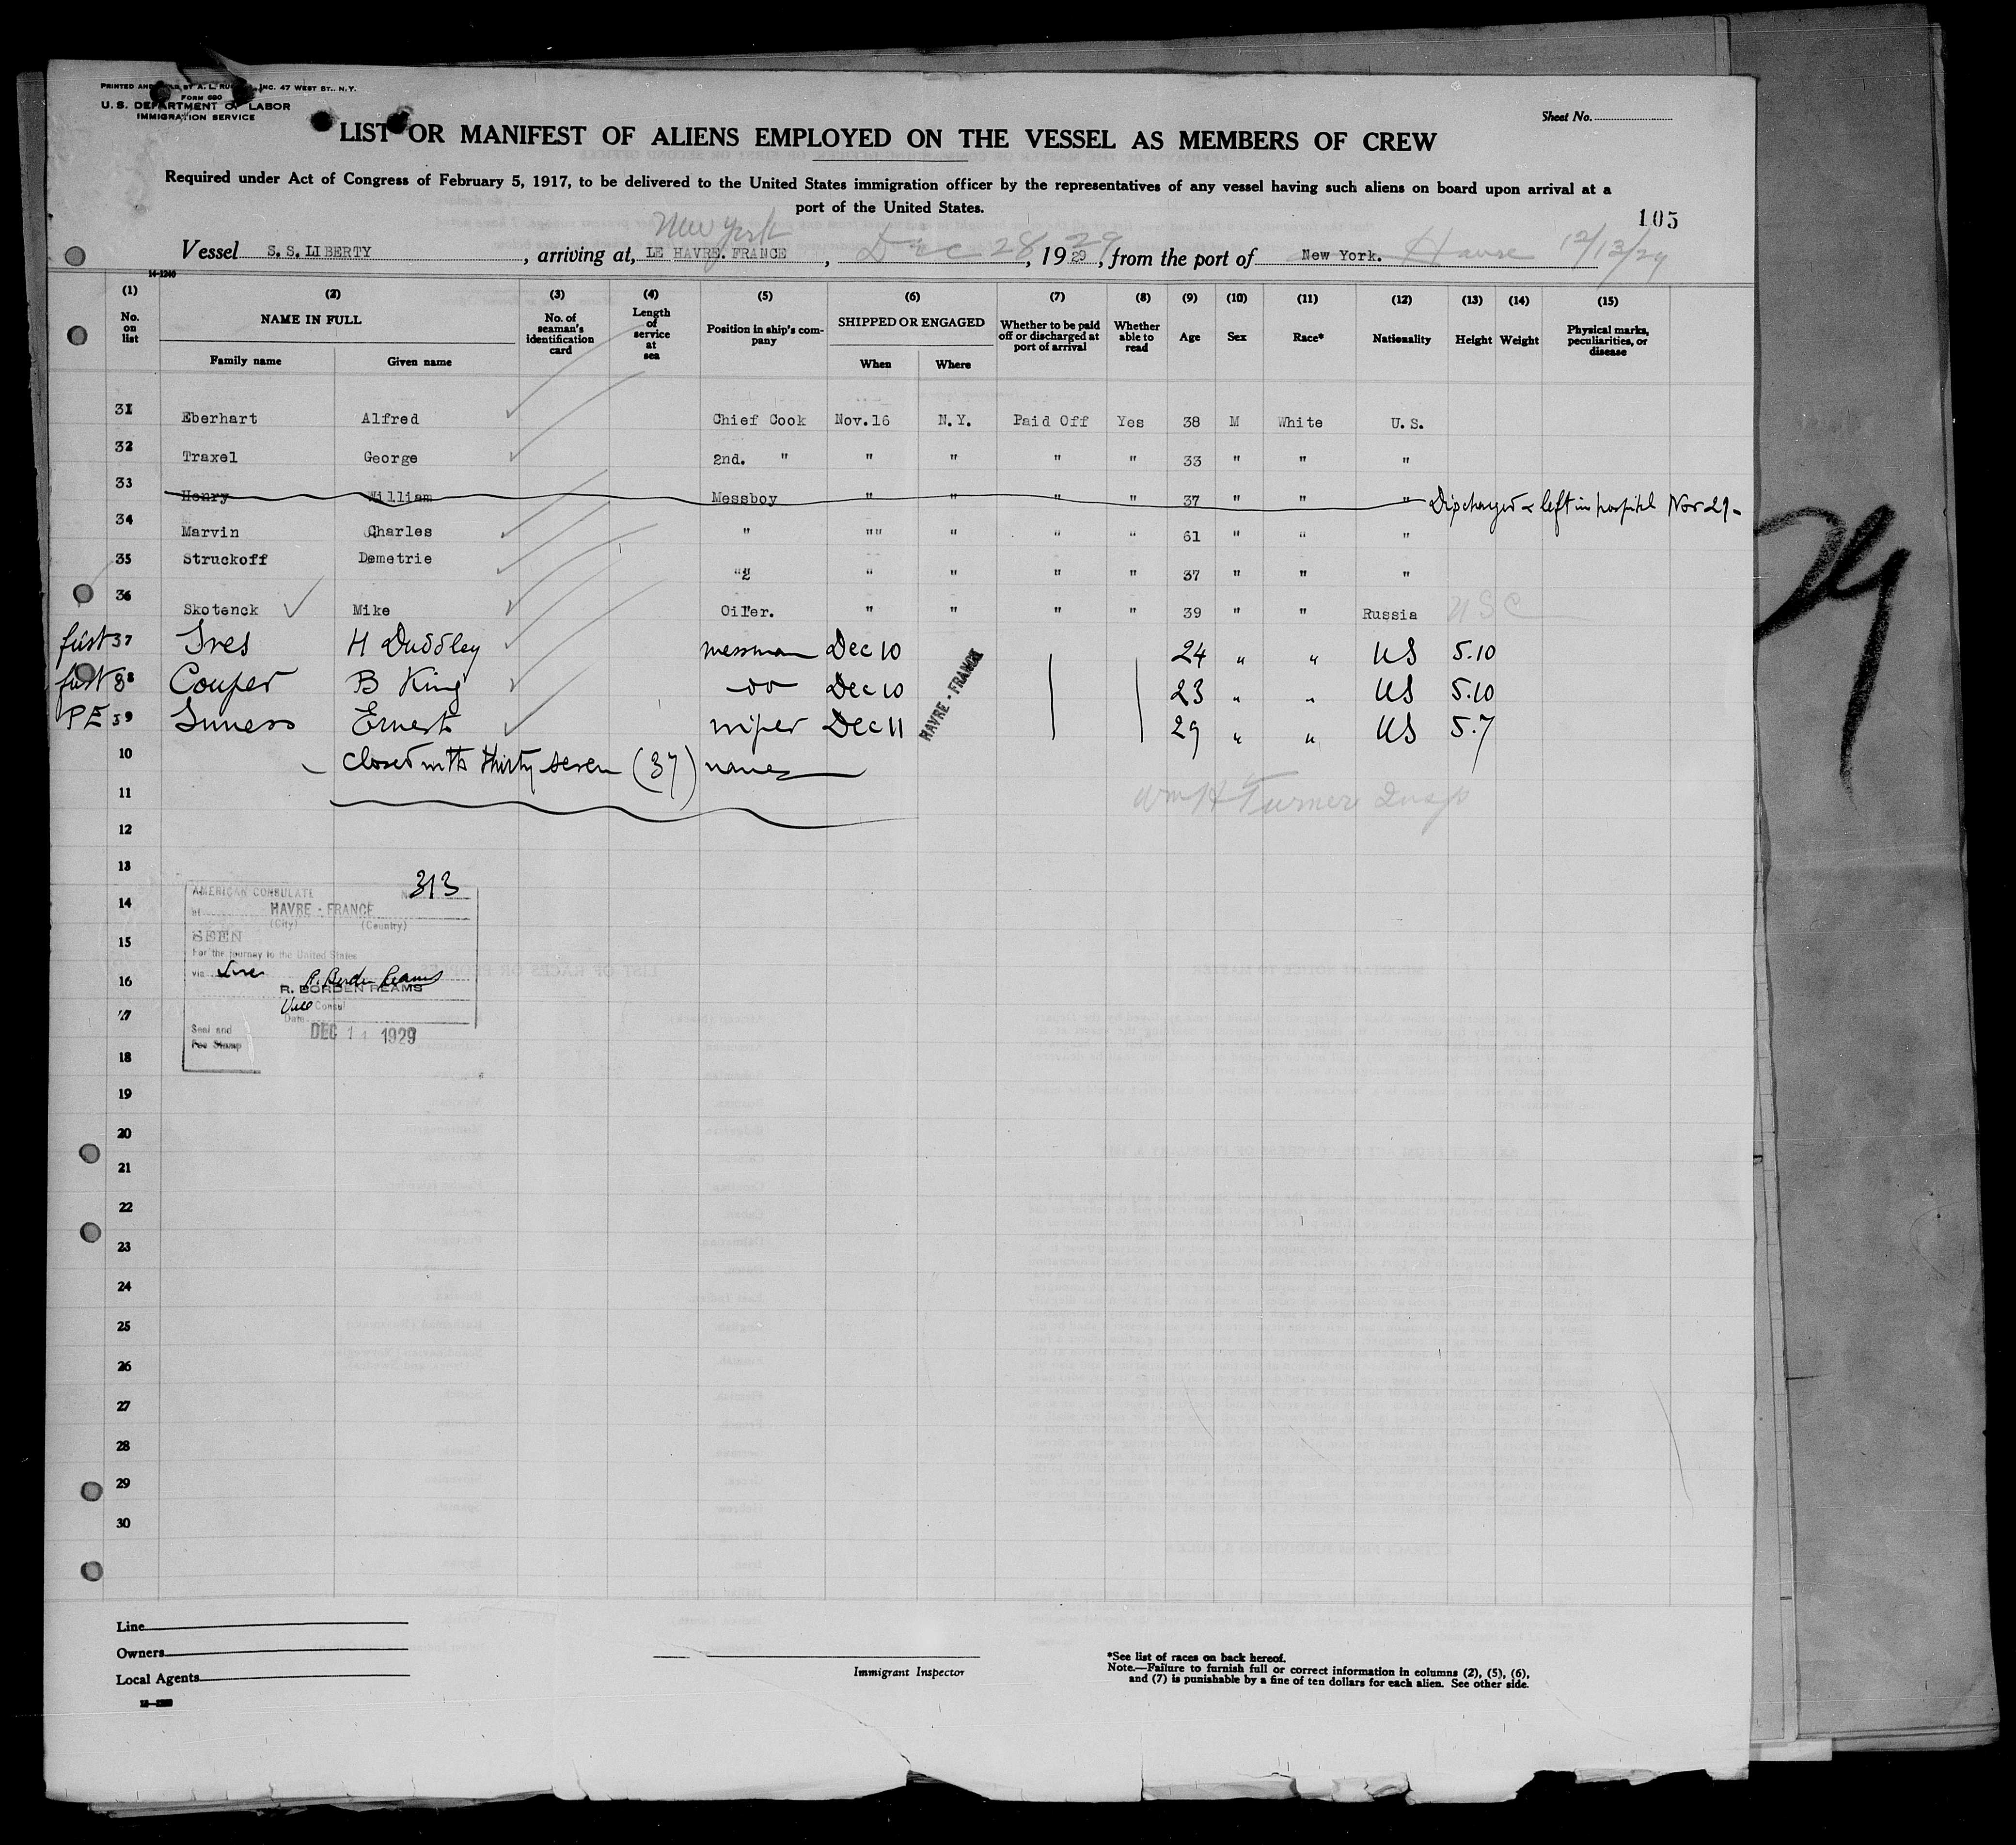 PRINTED AND SOLD BY A. L. RU INC. 47 WEST ST., N.Y.
FORM 680
U. S. DEPARTMENT OF LABOR
IMMIGRATION SERVICE
Sheet No.
LIST OR MANIFEST OF ALIENS EMPLOYED ON THE VESSEL AS MEMBERS OF CREW
Required under Act of Congress of February 5, 1917, to be delivered to the United States immigration officer by the representatives of any vessel having such aliens on board upon arrival at a
port of the United States.
105
New York
Vessel S.S. LIBERTY, arriving at, LE HAVRE. FRANCE, Dec 28, 1929 29, from the port of New York. Havre 12/13/29
14-1240
(1) (2) (3) (4) (5) (6) (7) (8) (9) (10) (11) (12) (13) (14) (15)
No. on list NAME IN FULL No. of seaman's identification card Length of service at sea Position in ship's company SHIPPED OR ENGAGED Whether to be paid off or discharged at port of arrival Whether able to read Age Sex Race* Nationality Height Weight Physical marks, peculiarities, or disease
Family name Given name When Where
31 Eberhart Alfred Chief Cook Nov.16 N.Y. Paid Off Yes 38 M White U.S.
32 Traxel George 2nd. " " " " " 33 " " "
33 Henry William Messboy " " " " 37 " " " Discharged & left in hospital Nov 29-
34 Marvin Charles " "" " " " 61 " " "
35 Struckoff Demetrie "2 " " " " 37 " " "
36 Skotenck Mike Oiler. " " " " 39 " " Russia USC
first 37 Ives H Duddley messman Dec 10 24 " " US 5.10
first 38 Couper B King -do- Dec 10 23 " " US 5.10
PE 39 Inness Ernest wiper Dec 11 29 " " US 5.7
HAVRE - FRANCE
10 Closed with thirty seven (37) names
11 Wm H Turner Insp
12
13
14
15
16
17
18
19
20
21
22
23
24
25
26
27
28
29
30
AMERICAN CONSULATE No. 313
at HAVRE - FRANCE
(City) (Country)
SEEN
For the journey to the United States
via
R. Borden Reams
R. BORDEN REAMS
Vice Consul
Date DEC 11 1929
Seal and
Fee Stamp
29
Line
Owners
Local Agents
Immigrant Inspector
*See list of races on back hereof.
Note.—Failure to furnish full or correct information in columns (2), (5), (6),
and (7) is punishable by a fine of ten dollars for each alien. See other side.